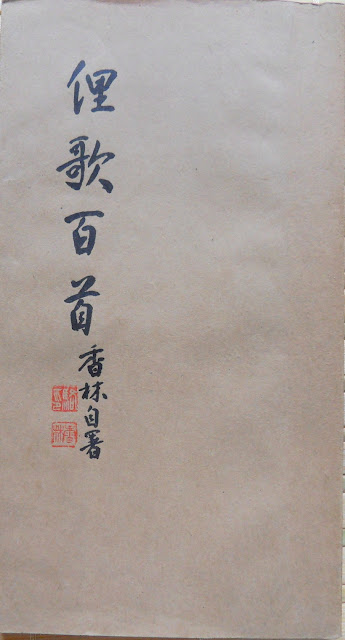 俚歌百首
香林自署